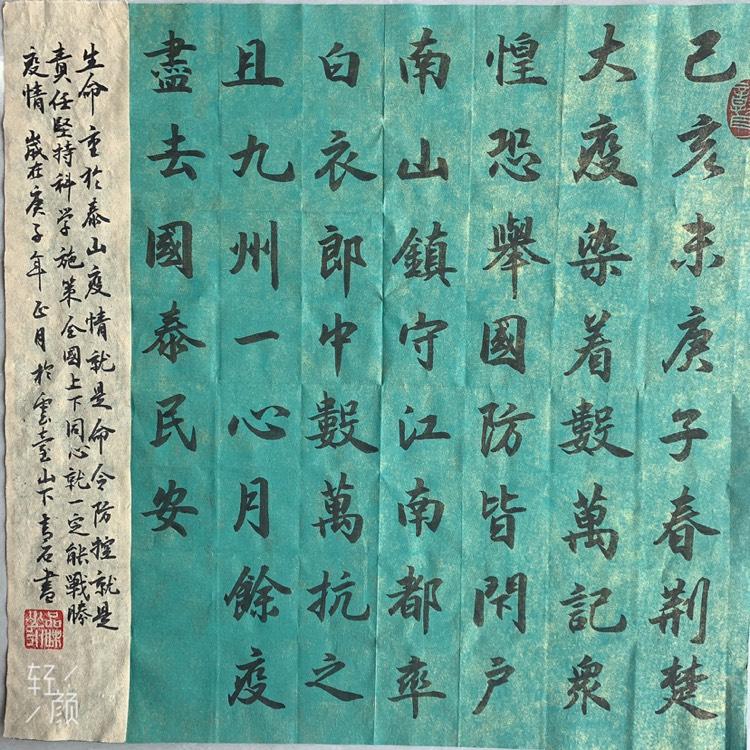 己亥末庚子春荆楚
大疫染着數萬記衆
惶恐舉國防皆閇户
南山鎮守江南都率
白衣郎中數萬抗之
且九州一心月餘疫
盡去國泰民安
生命重於泰山疫情就是命令防控就是
責任堅持科学施策全國上下同心就一定能戰勝
疫情 歲在庚子年正月於雲臺山下青石書
轻颜